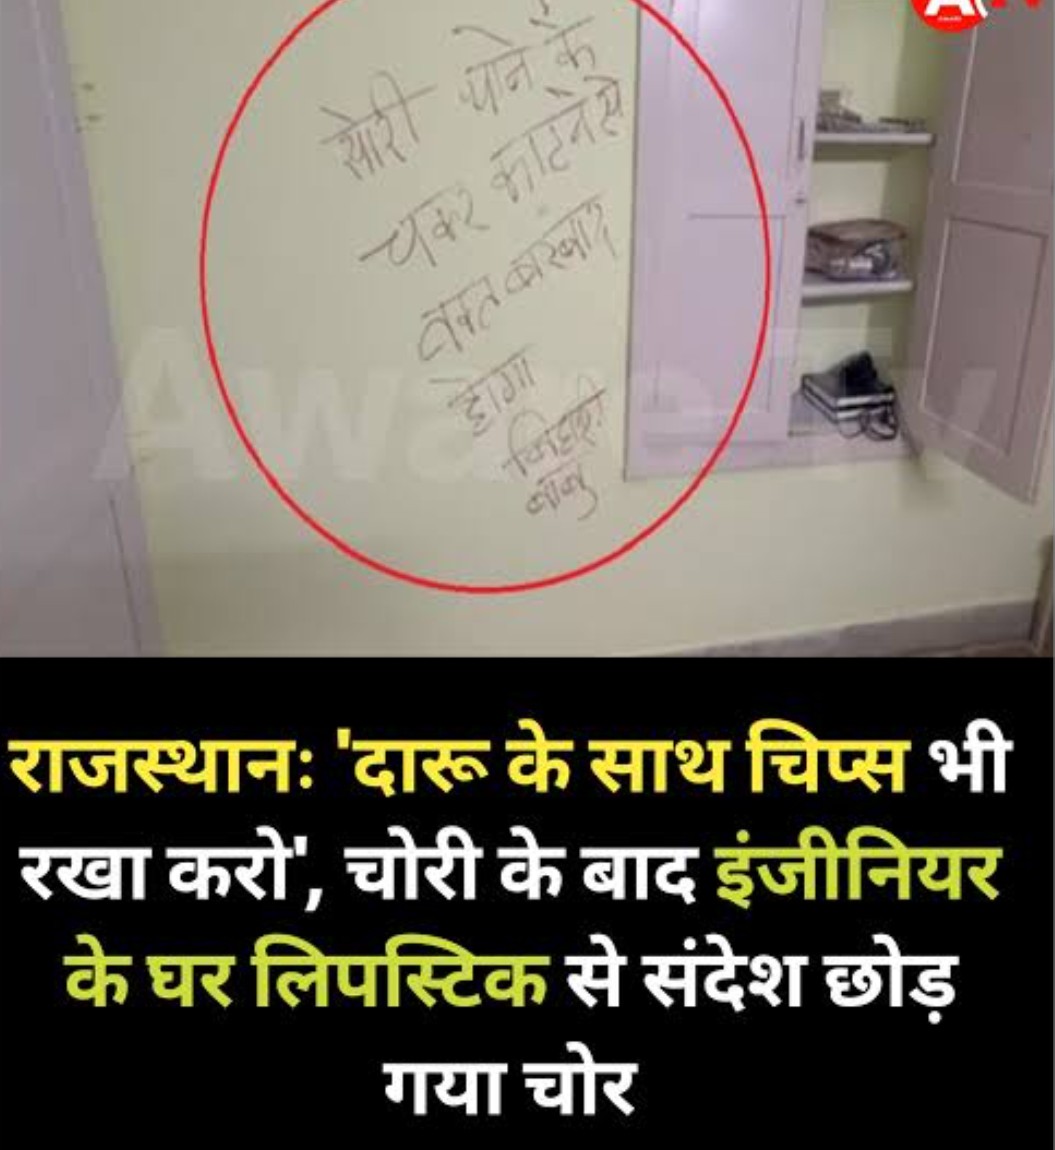 सोरी थाने के
चकर काटने से
वक्त बरबाद
होगा
बिहारी
बाबु
Aware Tv
राजस्थानः 'दारू के साथ चिप्स भी
रखा करो', चोरी के बाद इंजीनियर
के घर लिपस्टिक से संदेश छोड़
गया चोर